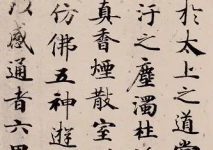 於太上之道當
汙之塵濁杜
真香煙散室
仿佛五神遊
以感通者六